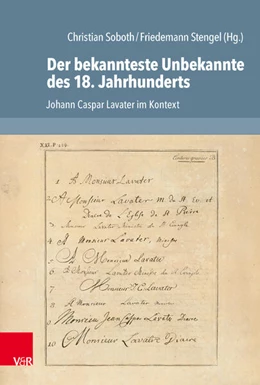 Christian Soboth / Friedemann Stengel (Hg.)
Der bekannteste Unbekannte
des 18. Jahrhunderts
Johann Caspar Lavater im Kontext
1 A Monsieur Lavater
2 A Monsieur Lavater
de l'Eglise de St
3 Monsieur Lavater
4 A Monsieur Lavater,
5 A Monsieur Lavater
6 A Monsieur Lavater
7 Monsieur
8 A Monsieur Lavater
9 Monsieur Jean Caspar Lavater Diacre
10 Monsieur Lavater Diacre
V&R